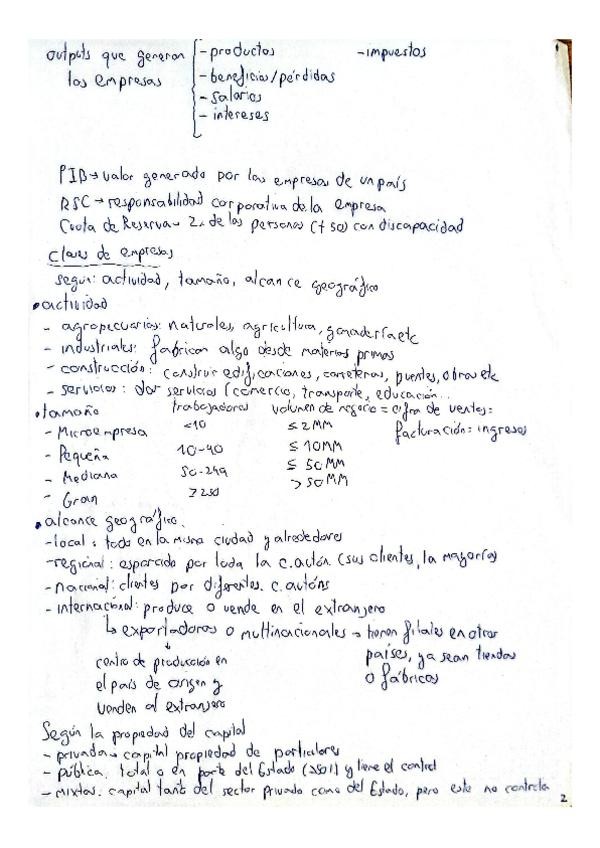 outputs que generan - productos - impuestos
las empresas - beneficios/pérdidas
- salarios
- intereses
PIB → valor generado por las empresas de un país
RSC → responsabilidad corporativa de la empresa
Cuota de Reserva → 2% de las personas (+50) con discapacidad
Clases de empresas
según: actividad, tamaño, alcance geográfico
• actividad
- agropecuarias: naturales, agricultura, ganadería etc
- industriales: fabrican algo desde materias primas
- construcción: construir edificaciones, carreteras, puentes, obras etc
- servicios: dar servicios (comercio, transporte, educación...
• tamaño trabajadores volumen de negocio = cifra de ventas:
- Microempresa <10 ≤ 2MM facturación: ingresos
- Pequeña 10-40 ≤ 10MM
- Mediana 50-249 ≤ 50MM
- Gran ≥250 > 50MM
• alcance geográfico.
- local: todo en la misma ciudad y alrededores
- regional: esparcido por toda la c. autón (sus clientes, la mayoría)
- nacional: clientes por diferentes. c. autóns
- internacional: produce o vende en el extranjero
↳ exportadoras o multinacionales → tienen filiales en otros
países, ya sean tiendas
o fábricas
centro de producción en
el país de origen y
venden al extranjero
Según la propiedad del capital
- privada → capital propiedad de particulares
- pública. total o en parte del Estado y tiene el control
- mixtas. capital tanto del sector privado como del Estado, pero este no controla
2